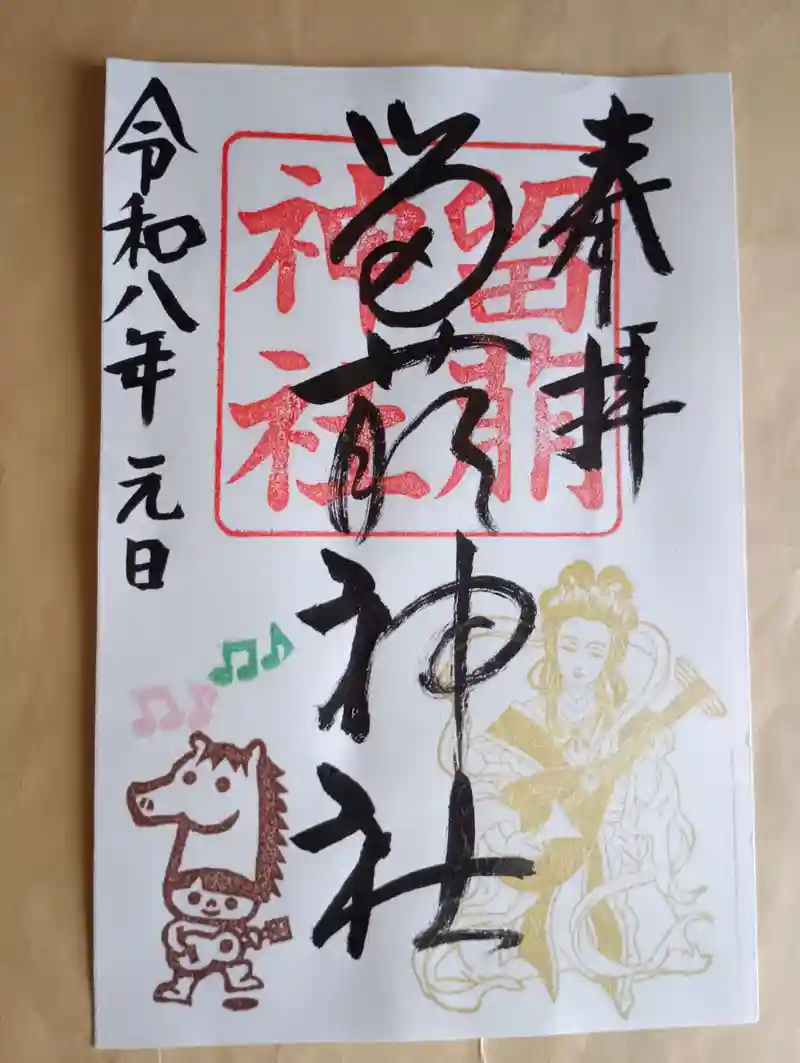 奉拝
留萠神社
留萠神社
令和八年 元日